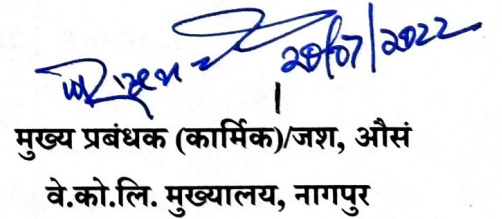 20/07/2022
मुख्य प्रबंधक (कार्मिक)/जश, औसं
वे.को.लि. मुख्यालय, नागपुर